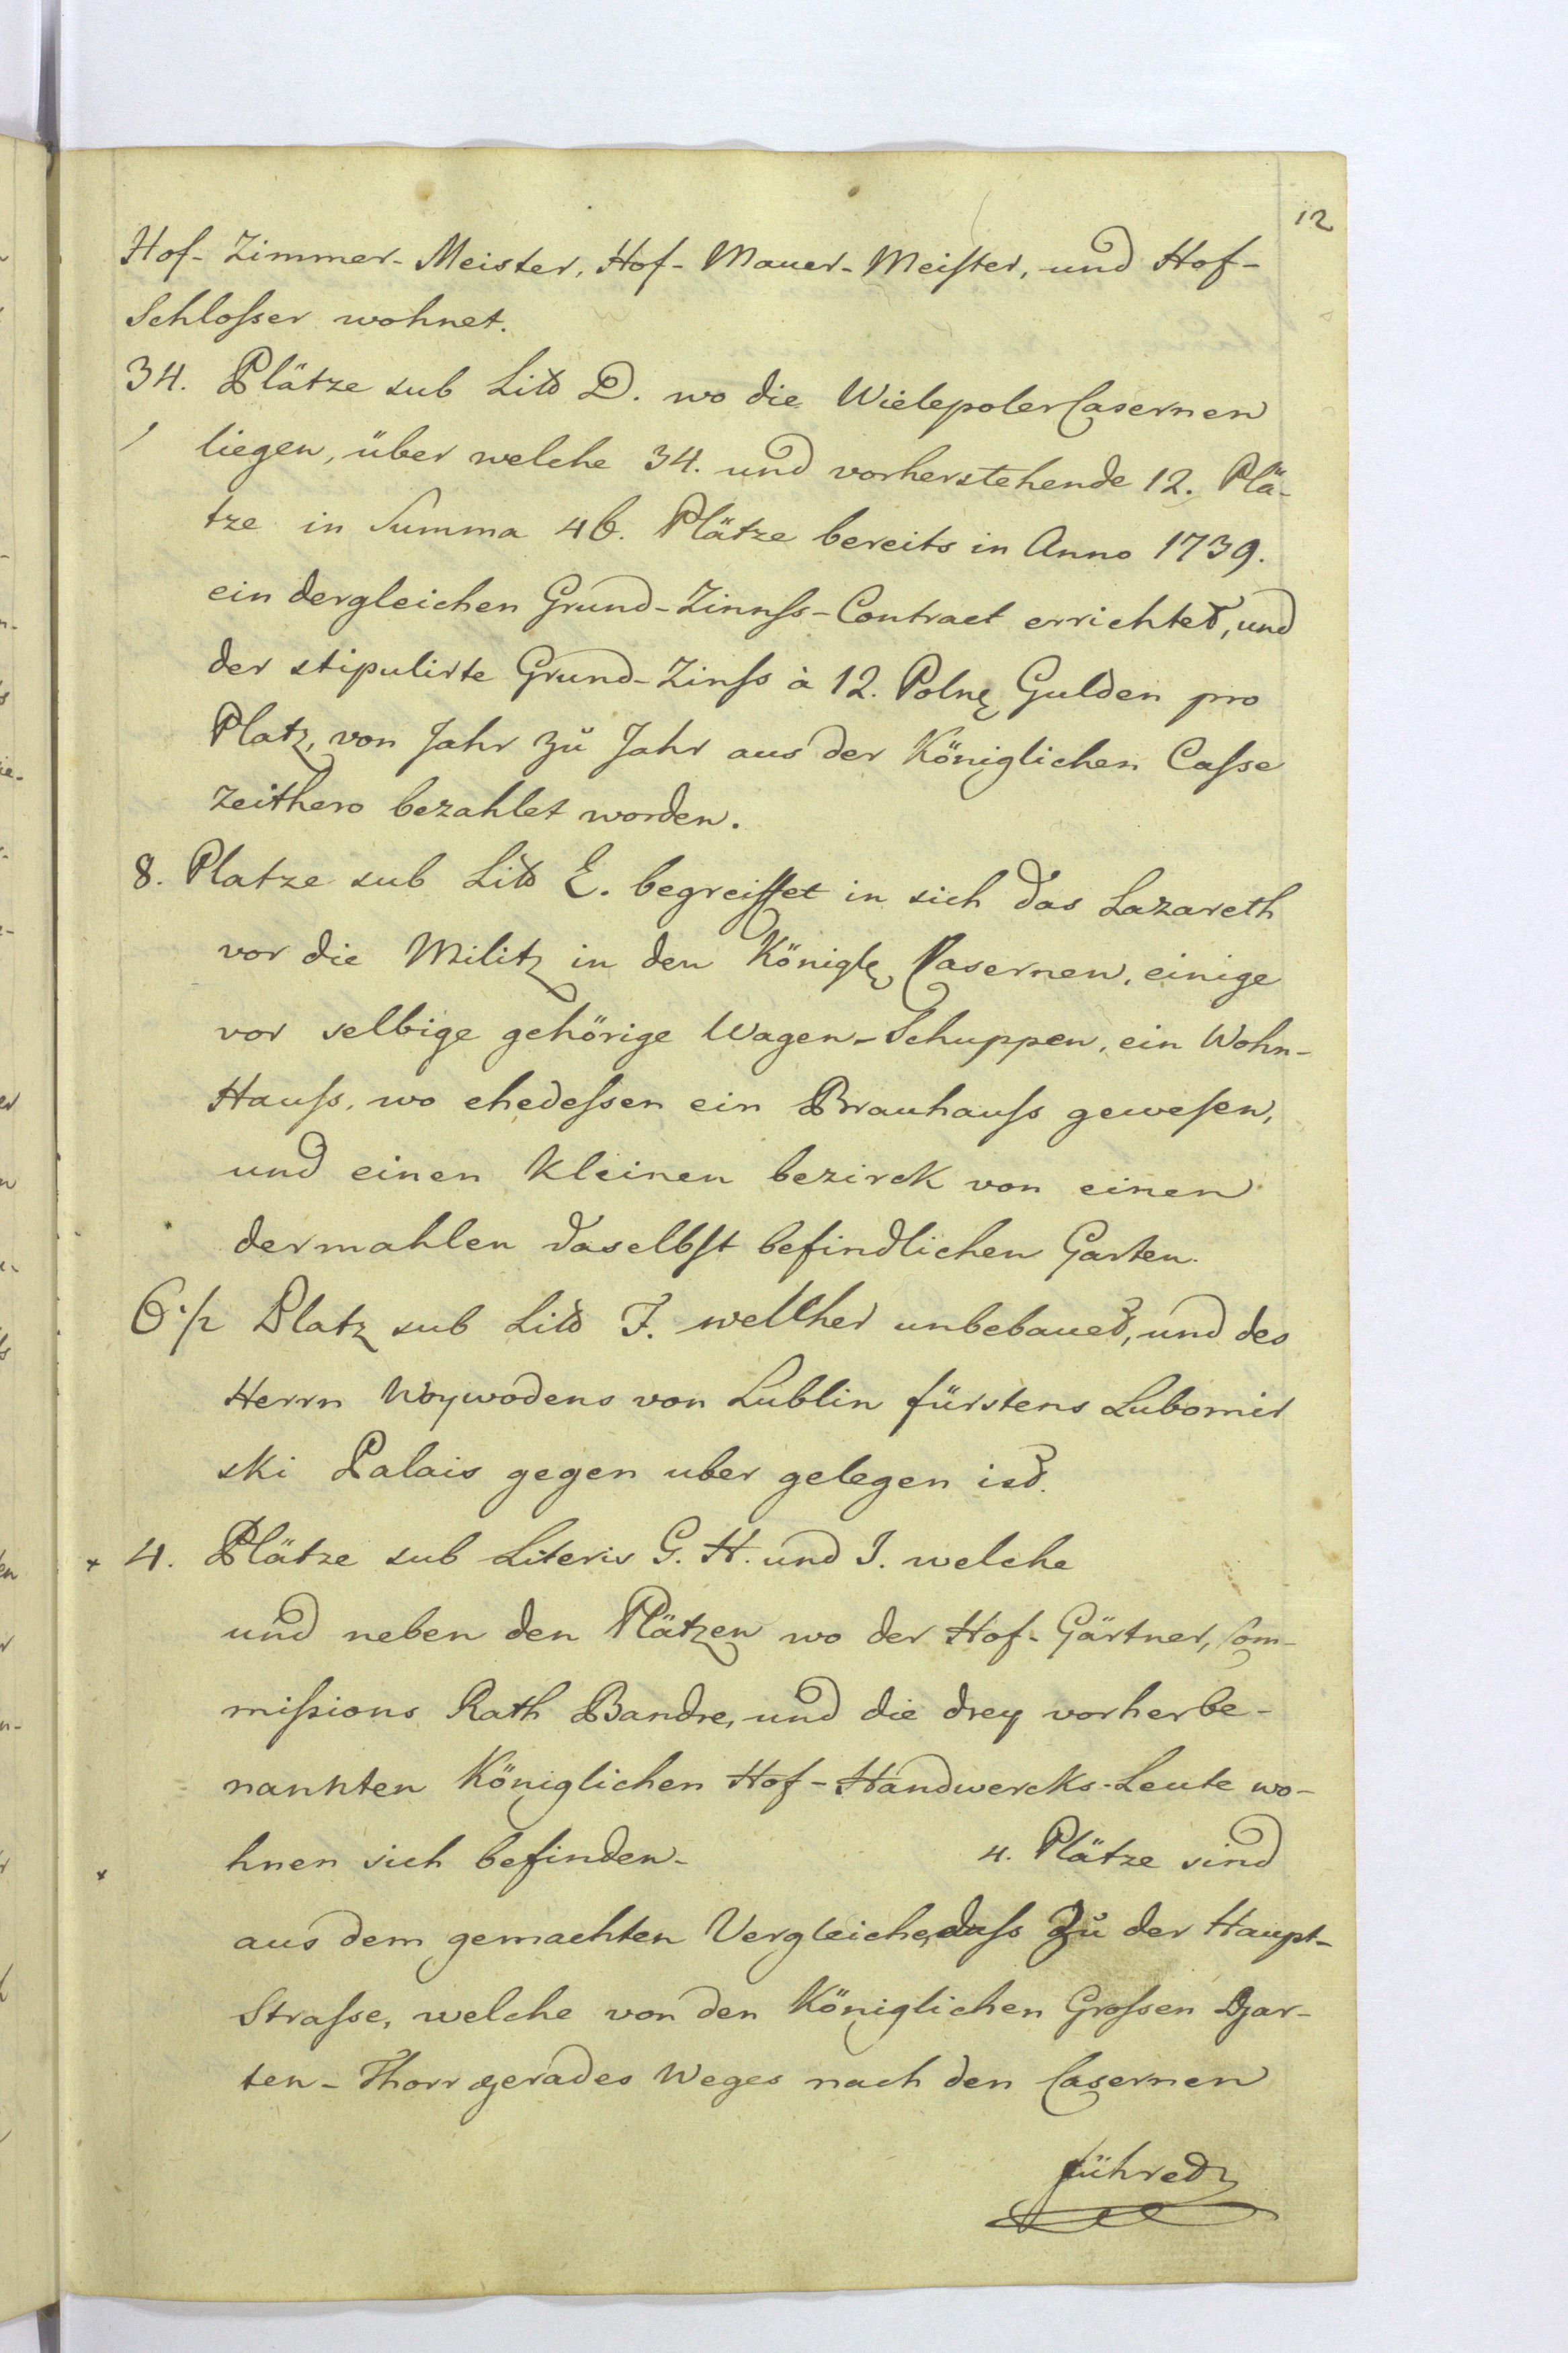 12
Hof-Zimmer-Meister, Hof-Mauer-Meister, und Hof-
Schlosser wohnet.
34. Plätze sub Litt D. wo die Wielepoler Casernen
liegen, über welche 34. und vorherstehende 12. Plä-
tze in Summa 46. Plätze bereits in Anno 1739.
ein dergleichen Grund-Zinnß-Contract errichtet, und
der stipulirte Grund-Zinß à 12. Poln. Gulden pro
Platz, von Jahr zu Jahr aus der Königlichen Casse
zeithero bezahlet worden.
8. Platze sub Litt E. begreiffet in sich das Lazareth
vor die Militz in den Königl. Casernen, einige
vor selbige gehörige Wagen-Schuppen, ein Wohn-
Hauß, wo ehedessen ein Brauhauß gewesen,
und einen Kleinen bezirck von einen
dermahlen daselbst befindlichen Garten.
6 1/2 Platz sub Litt F. welcher unbebauet, und des
Herrn Woywodens von Lublin fürstens Lubomir
ski Palais gegen uber gelegen ist.
4. Plätze sub Literis G. H. und I. welche
und neben den Plätzen wo der Hof-Gärtner, Com-
missions Rath Bandre, und die drey vorherbe-
nannten Königlichen Hof-Handwercks-Leute wo-
hnen sich befinden- 4. Plätze sind
aus dem gemachten Vergleiche, daß zu der Haupt-
Strasse, welche von den Königlichen Grossen Gar-
ten-Thorr gerades Weges nach den Casernen
führet